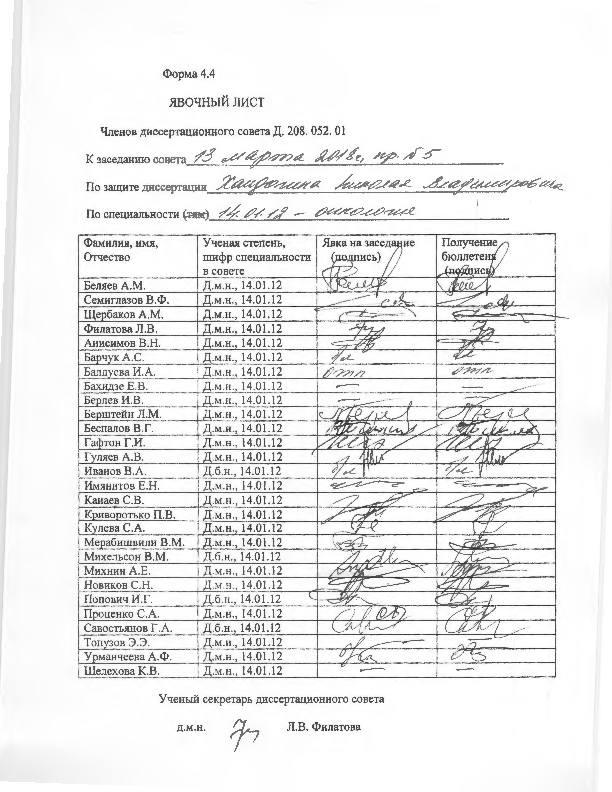 Форма 4.4
ЯВОЧНЫЙ ЛИСТ
Членов диссертационного совета Д. 208. 052. 01
К заседанию совета 13 марта 2018г, пр. №5
По защите диссертации Николая Владимировича
По специальности (там) 14.01.12 – онкология
Фамилия, имя, Отчество | Ученая степень, шифр специальности в совете | Явка на заседание (подпись) | Получение бюллетеня (подпись)
Беляев А.М. Д.м.н., 14.01.12
Семиглазов В.Ф. Д.м.н., 14.01.12
Щербаков А.М. Д.м.н., 14.01.12
Филатова Л.В. Д.м.н., 14.01.12
Анисимов В.Н. Д.м.н., 14.01.12
Барчук А.С. Д.м.н., 14.01.12 б/л б/л
Балдуева И.А. Д.м.н., 14.01.12 отп отп
Бахидзе Е.В. Д.м.н., 14.01.12 — —
Берлев И.В. Д.м.н., 14.01.12 — —
Берштейн Л.М. Д.м.н., 14.01.12
Беспалов В.Г. Д.м.н., 14.01.12
Гафтон Г.И. Д.м.н., 14.01.12
Гуляев А.В. Д.м.н., 14.01.12
Иванов В.А. Д.б.н., 14.01.12 б/л б/л
Имянитов Е.Н. Д.м.н., 14.01.12 — —
Канаев С.В. Д.м.н., 14.01.12
Криворотько П.В. Д.м.н., 14.01.12
Кулева С.А. Д.м.н., 14.01.12
Мерабишвили В.М. Д.м.н., 14.01.12
Михельсон В.М. Д.б.н., 14.01.12
Михнин А.Е. Д.м.н., 14.01.12
Новиков С.Н. Д.м.н., 14.01.12
Попович И.Г. Д.б.н., 14.01.12
Проценко С.А. Д.м.н., 14.01.12
Савостьянов Г.А. Д.б.н., 14.01.12
Топузов Э.Э. Д.м.н., 14.01.12 — —
Урманчеева А.Ф. Д.м.н., 14.01.12
Шелехова К.В. Д.м.н., 14.01.12 — —
Ученый секретарь диссертационного совета
д.м.н. Л.В. Филатова